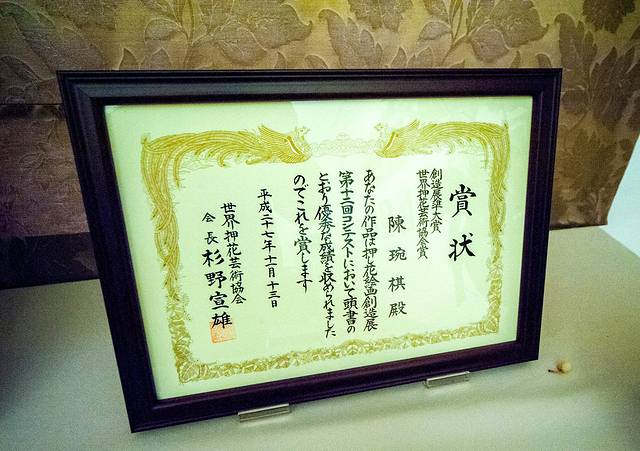 賞状
創造展準大賞
世界押花芸術協会賞
陳琬棋殿
あなたの作品は押し花絵画創造展
第十二回コンテストにおいて頭書の
とおり優秀な成績を収められました
のでこれを賞します
平成二十七年十一月十三日
世界押花芸術協会
会長 杉野宣雄